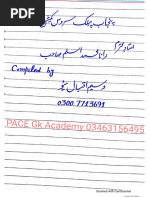 پنجاب پبلک سروس کمیشن
استاد محترم
رانا محمد اسلم صاحب
Compiled by
وسیم اقبال
0300.7713691
PACE Gk Academy 03463156495
Scanned with CamScanner